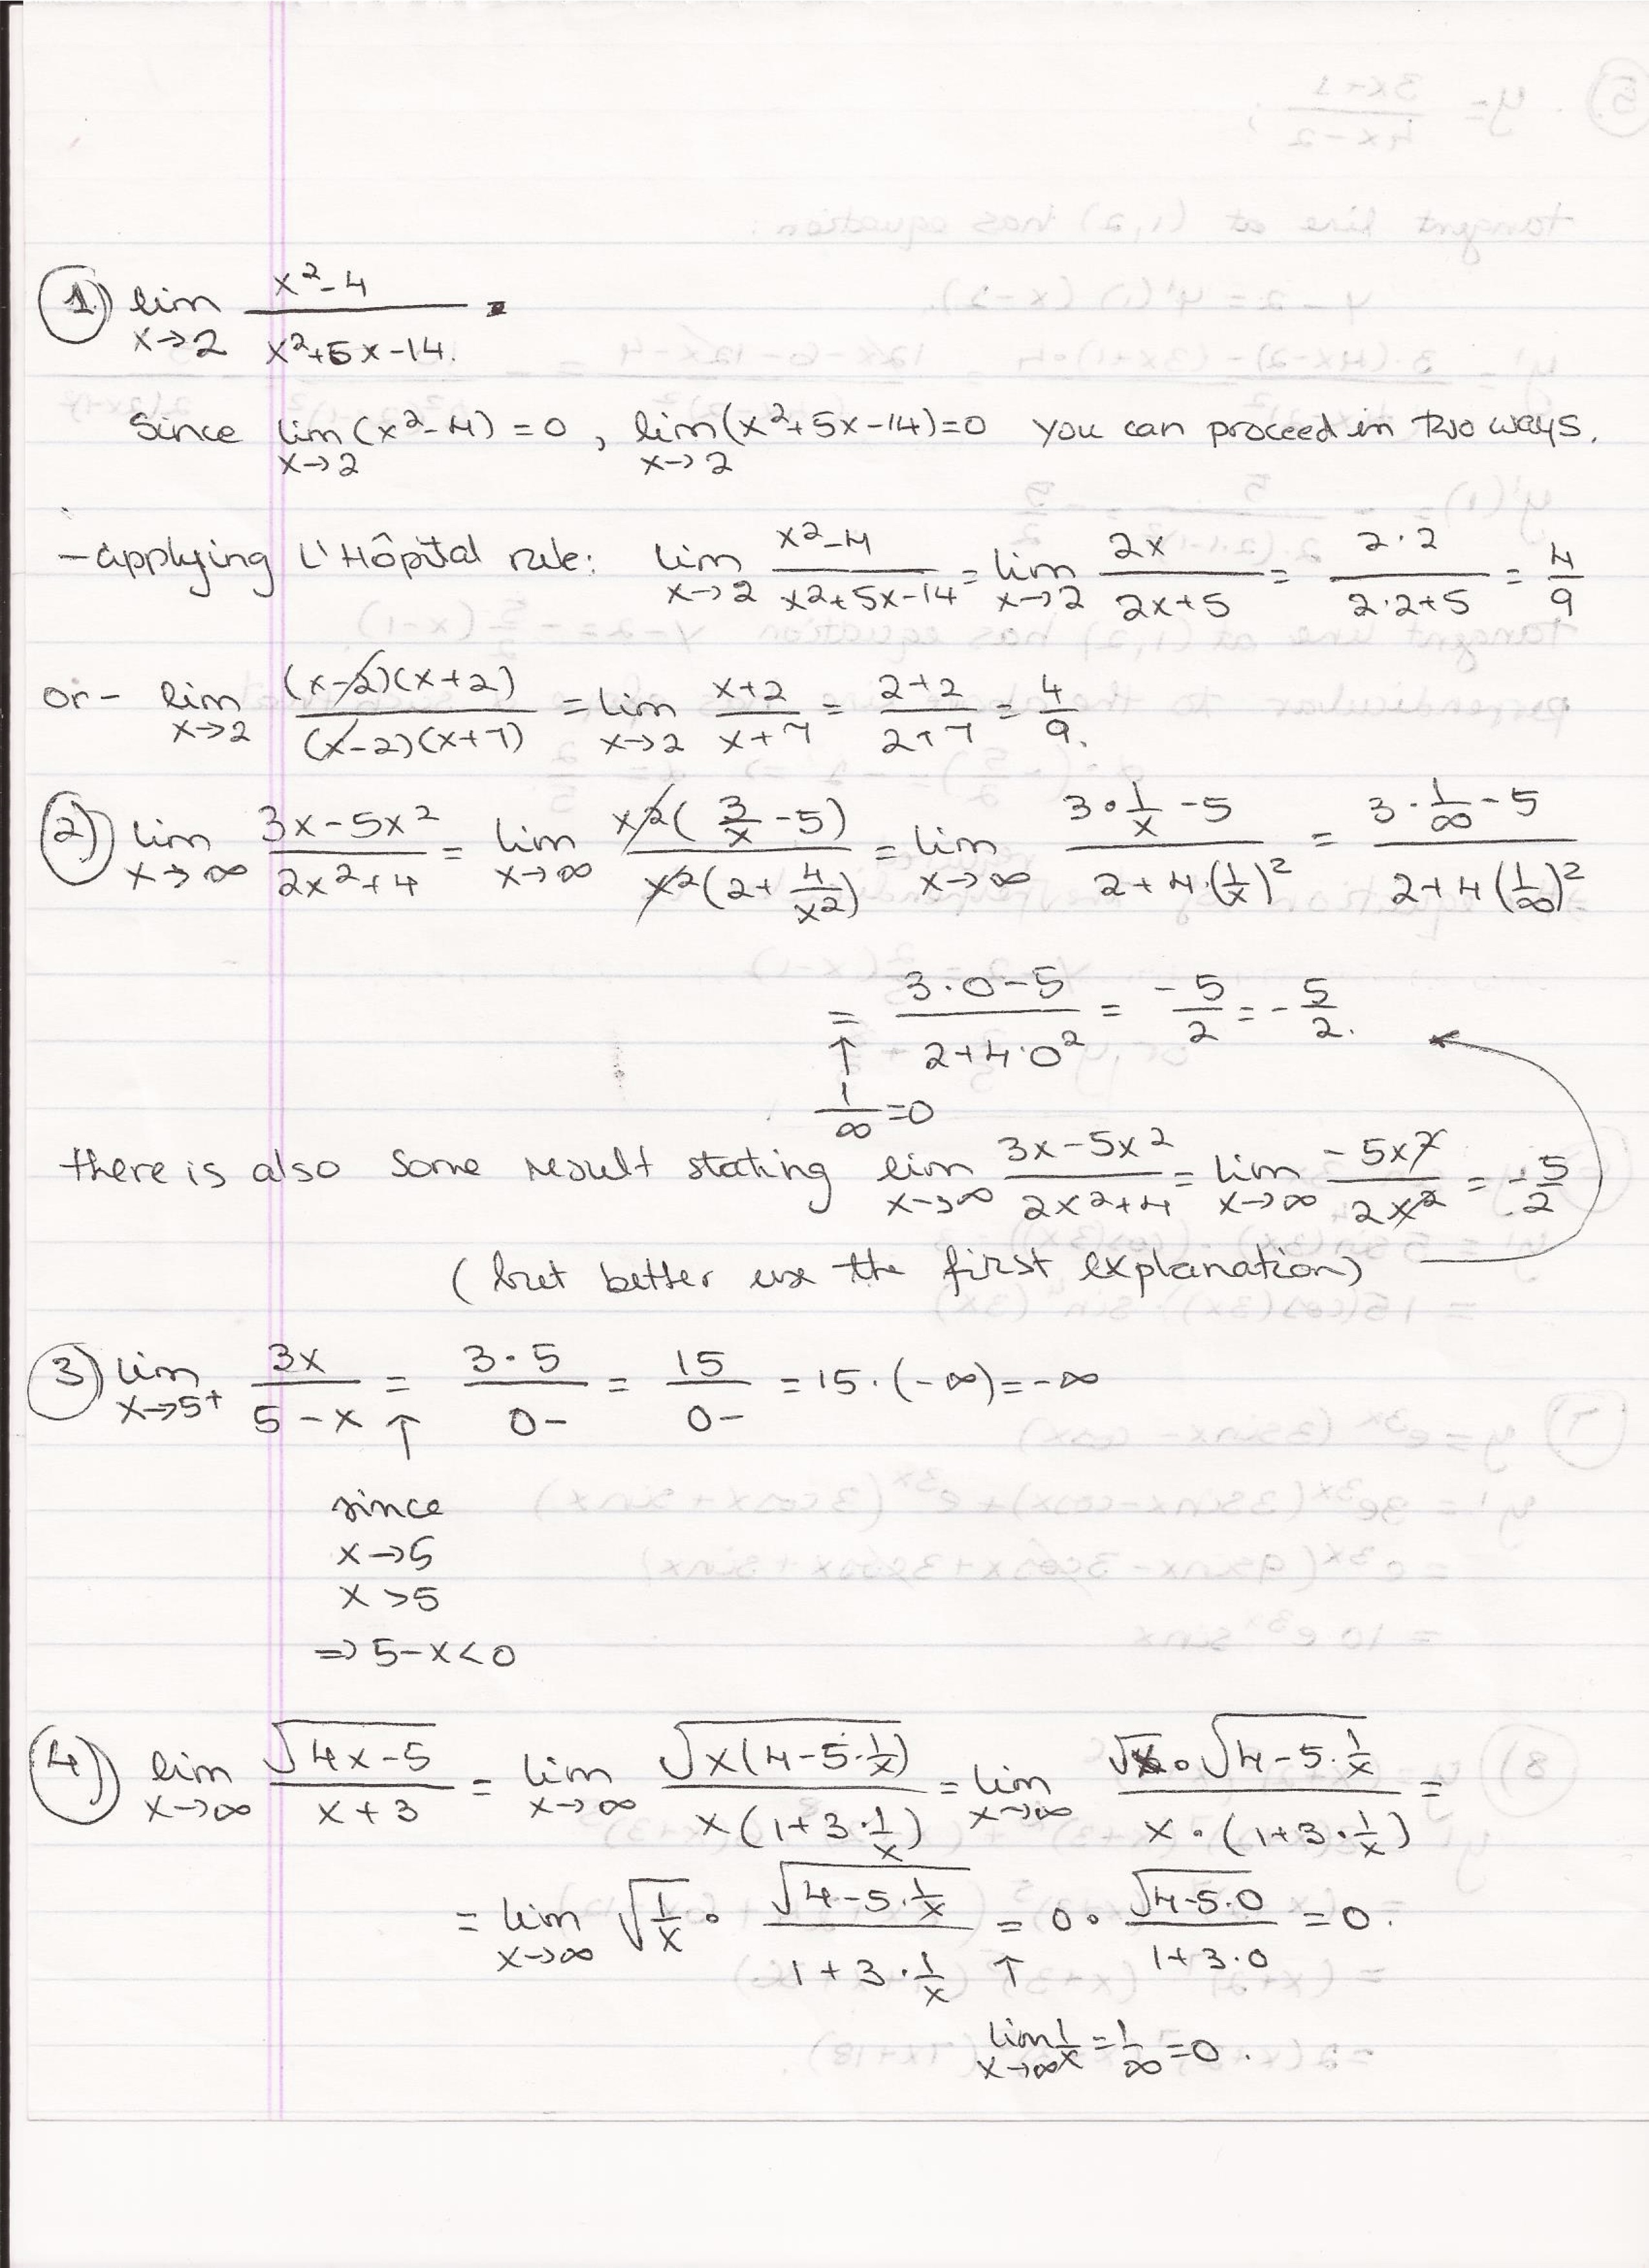 1) lim x→2 (x²-4)/(x²+5x-14) =
Since lim x→2 (x²-4) = 0, lim x→2 (x²+5x-14)=0 you can proceed in two ways.
- applying L'Hôpital rule: lim x→2 (x²-4)/(x²+5x-14) = lim x→2 2x/(2x+5) = (2·2)/(2·2+5) = 4/9
or - lim x→2 ((x-2)(x+2))/((x-2)(x+7)) = lim x→2 (x+2)/(x+7) = (2+2)/(2+7) = 4/9.
2) lim x→∞ (3x-5x²)/(2x²+4) = lim x→∞ (x²(3/x -5))/(x²(2+4/x²)) = lim x→∞ (3·1/x -5)/(2+4·(1/x)²) = (3·1/∞ -5)/(2+4(1/∞)²)
= (3·0-5)/(2+4·0²) = -5/2 = -5/2.
↑
1/∞ =0
there is also some result stating lim x→∞ (3x-5x²)/(2x²+4) = lim x→∞ -5x²/2x² = -5/2
(but better use the first explanation)
3) lim x→5+ 3x/(5-x) = (3·5)/0- = 15/0- = 15·(-∞)=-∞
↑
since
x→5
x>5
⇒ 5-x<0
4) lim x→∞ √(4x-5)/(x+3) = lim x→∞ √(x(4-5·1/x))/(x(1+3·1/x)) = lim x→∞ (√x·√(4-5·1/x))/(x·(1+3·1/x)) =
= lim x→∞ √(1/x) · √(4-5·1/x)/(1+3·1/x) = 0·√(4-5·0)/(1+3·0) = 0.
↑
lim x→∞ 1/x = 1/∞ = 0.